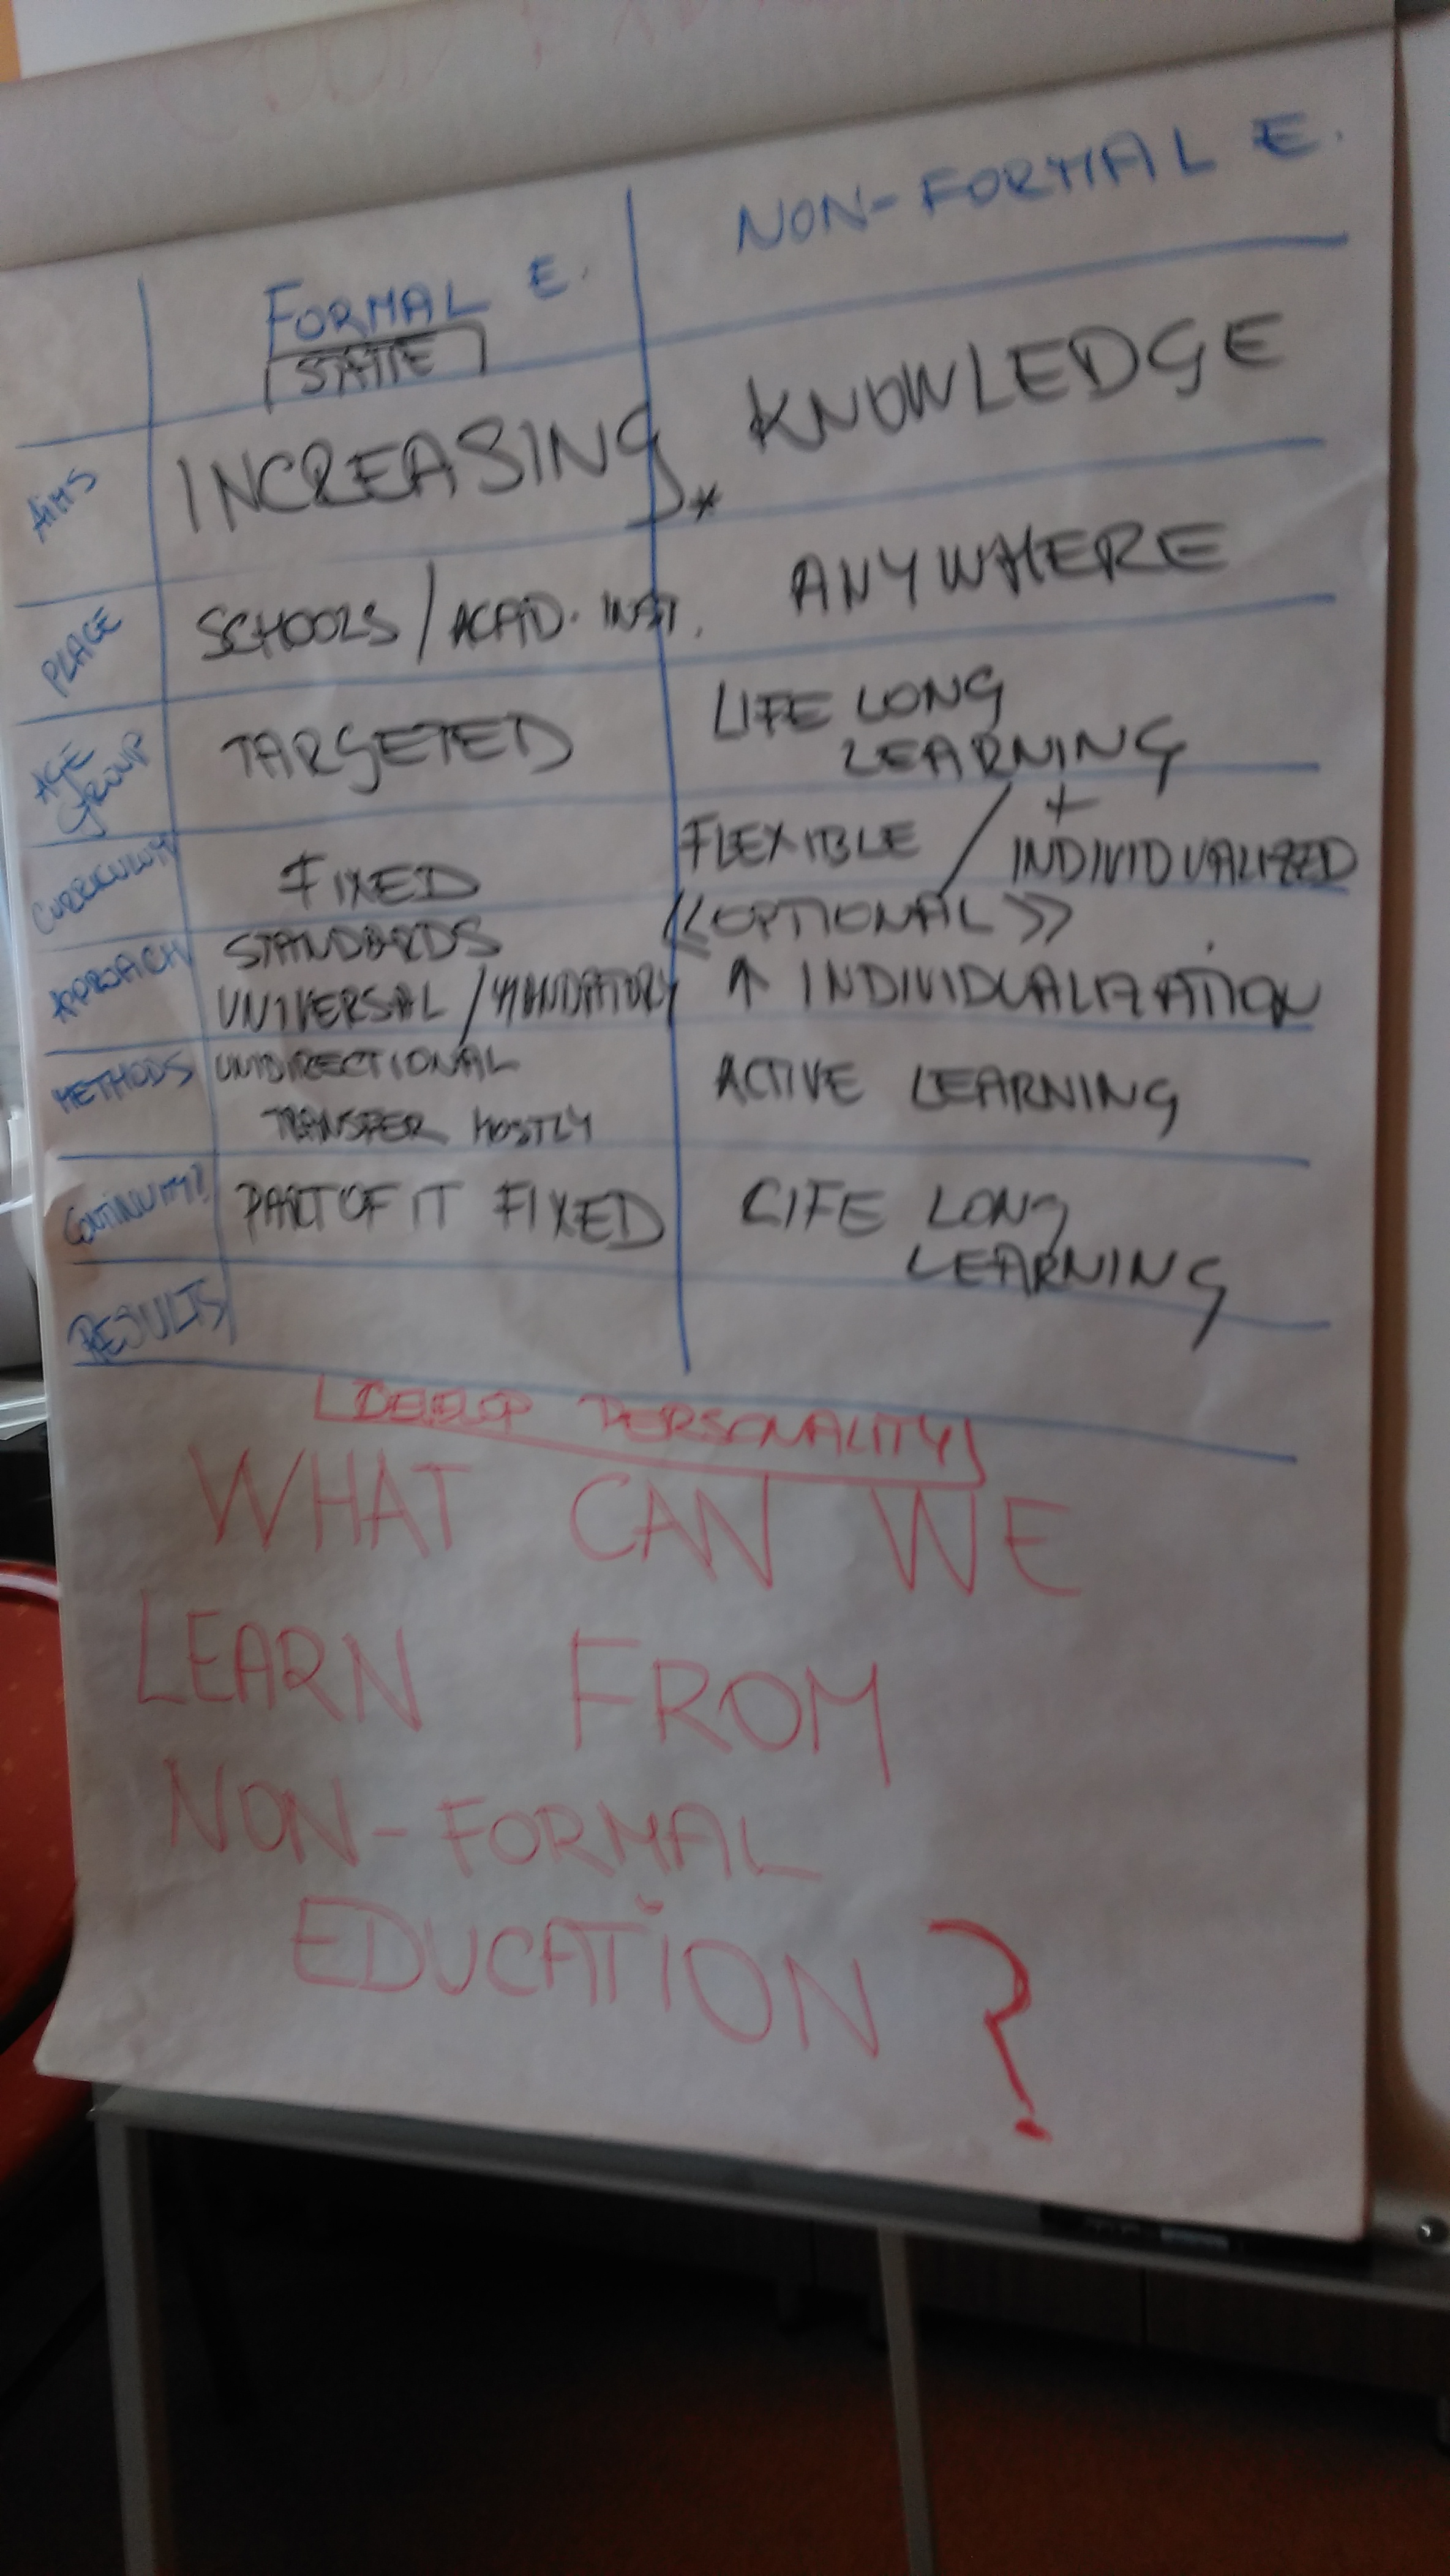 NON-FORMAL E.
FORMAL E.
STATE
AIMS INCREASING * KNOWLEDGE
PLACE SCHOOLS / ACAD. INST. ANYWHERE
AGE GROUP TARGETED LIFE LONG
LEARNING
CURRICULUM FIXED FLEXIBLE / + INDIVIDUALIZED
APPROACH STANDARDS <<OPTIONAL>>
UNIVERSAL / MANDATORY ↑ INDIVIDUALIZATION
METHODS UNIDIRECTIONAL ACTIVE LEARNING
TRANSFER MOSTLY
CONTINUITY? PART OF IT FIXED LIFE LONG
LEARNING
RESULTS
PERSONALITY
WHAT CAN WE
LEARN FROM
NON-FORMAL
EDUCATION ?